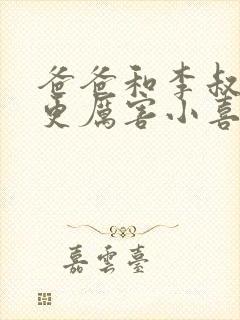 爸爸和李叔
更厉害小喜
嘉雲臺